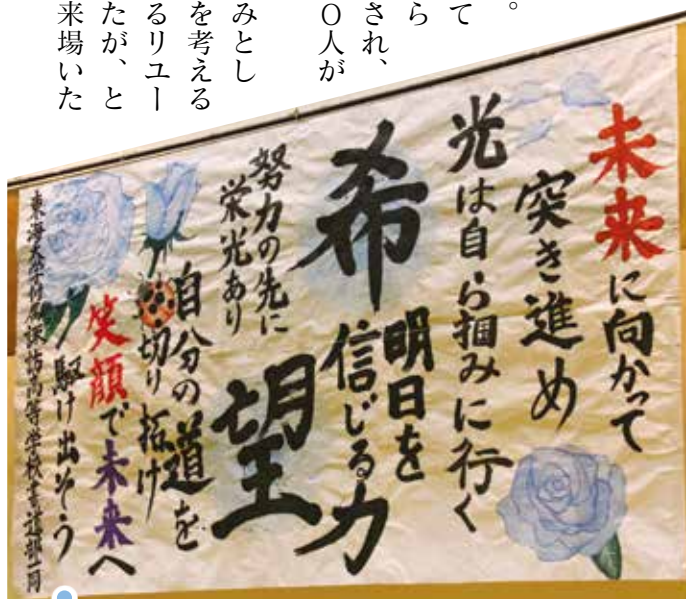 。
て
ら
され、
〇人が
みとし
を考える
るリユー
たが、と
来場いた
未来に向かって
突き進め
光は自ら掴みに行く
希望
明日を
信じる力
努力の先に
栄光あり
自分の道を
切り拓け
笑顔で未来へ
駆け出そう
東海大学付属諏訪高等学校書道部一同